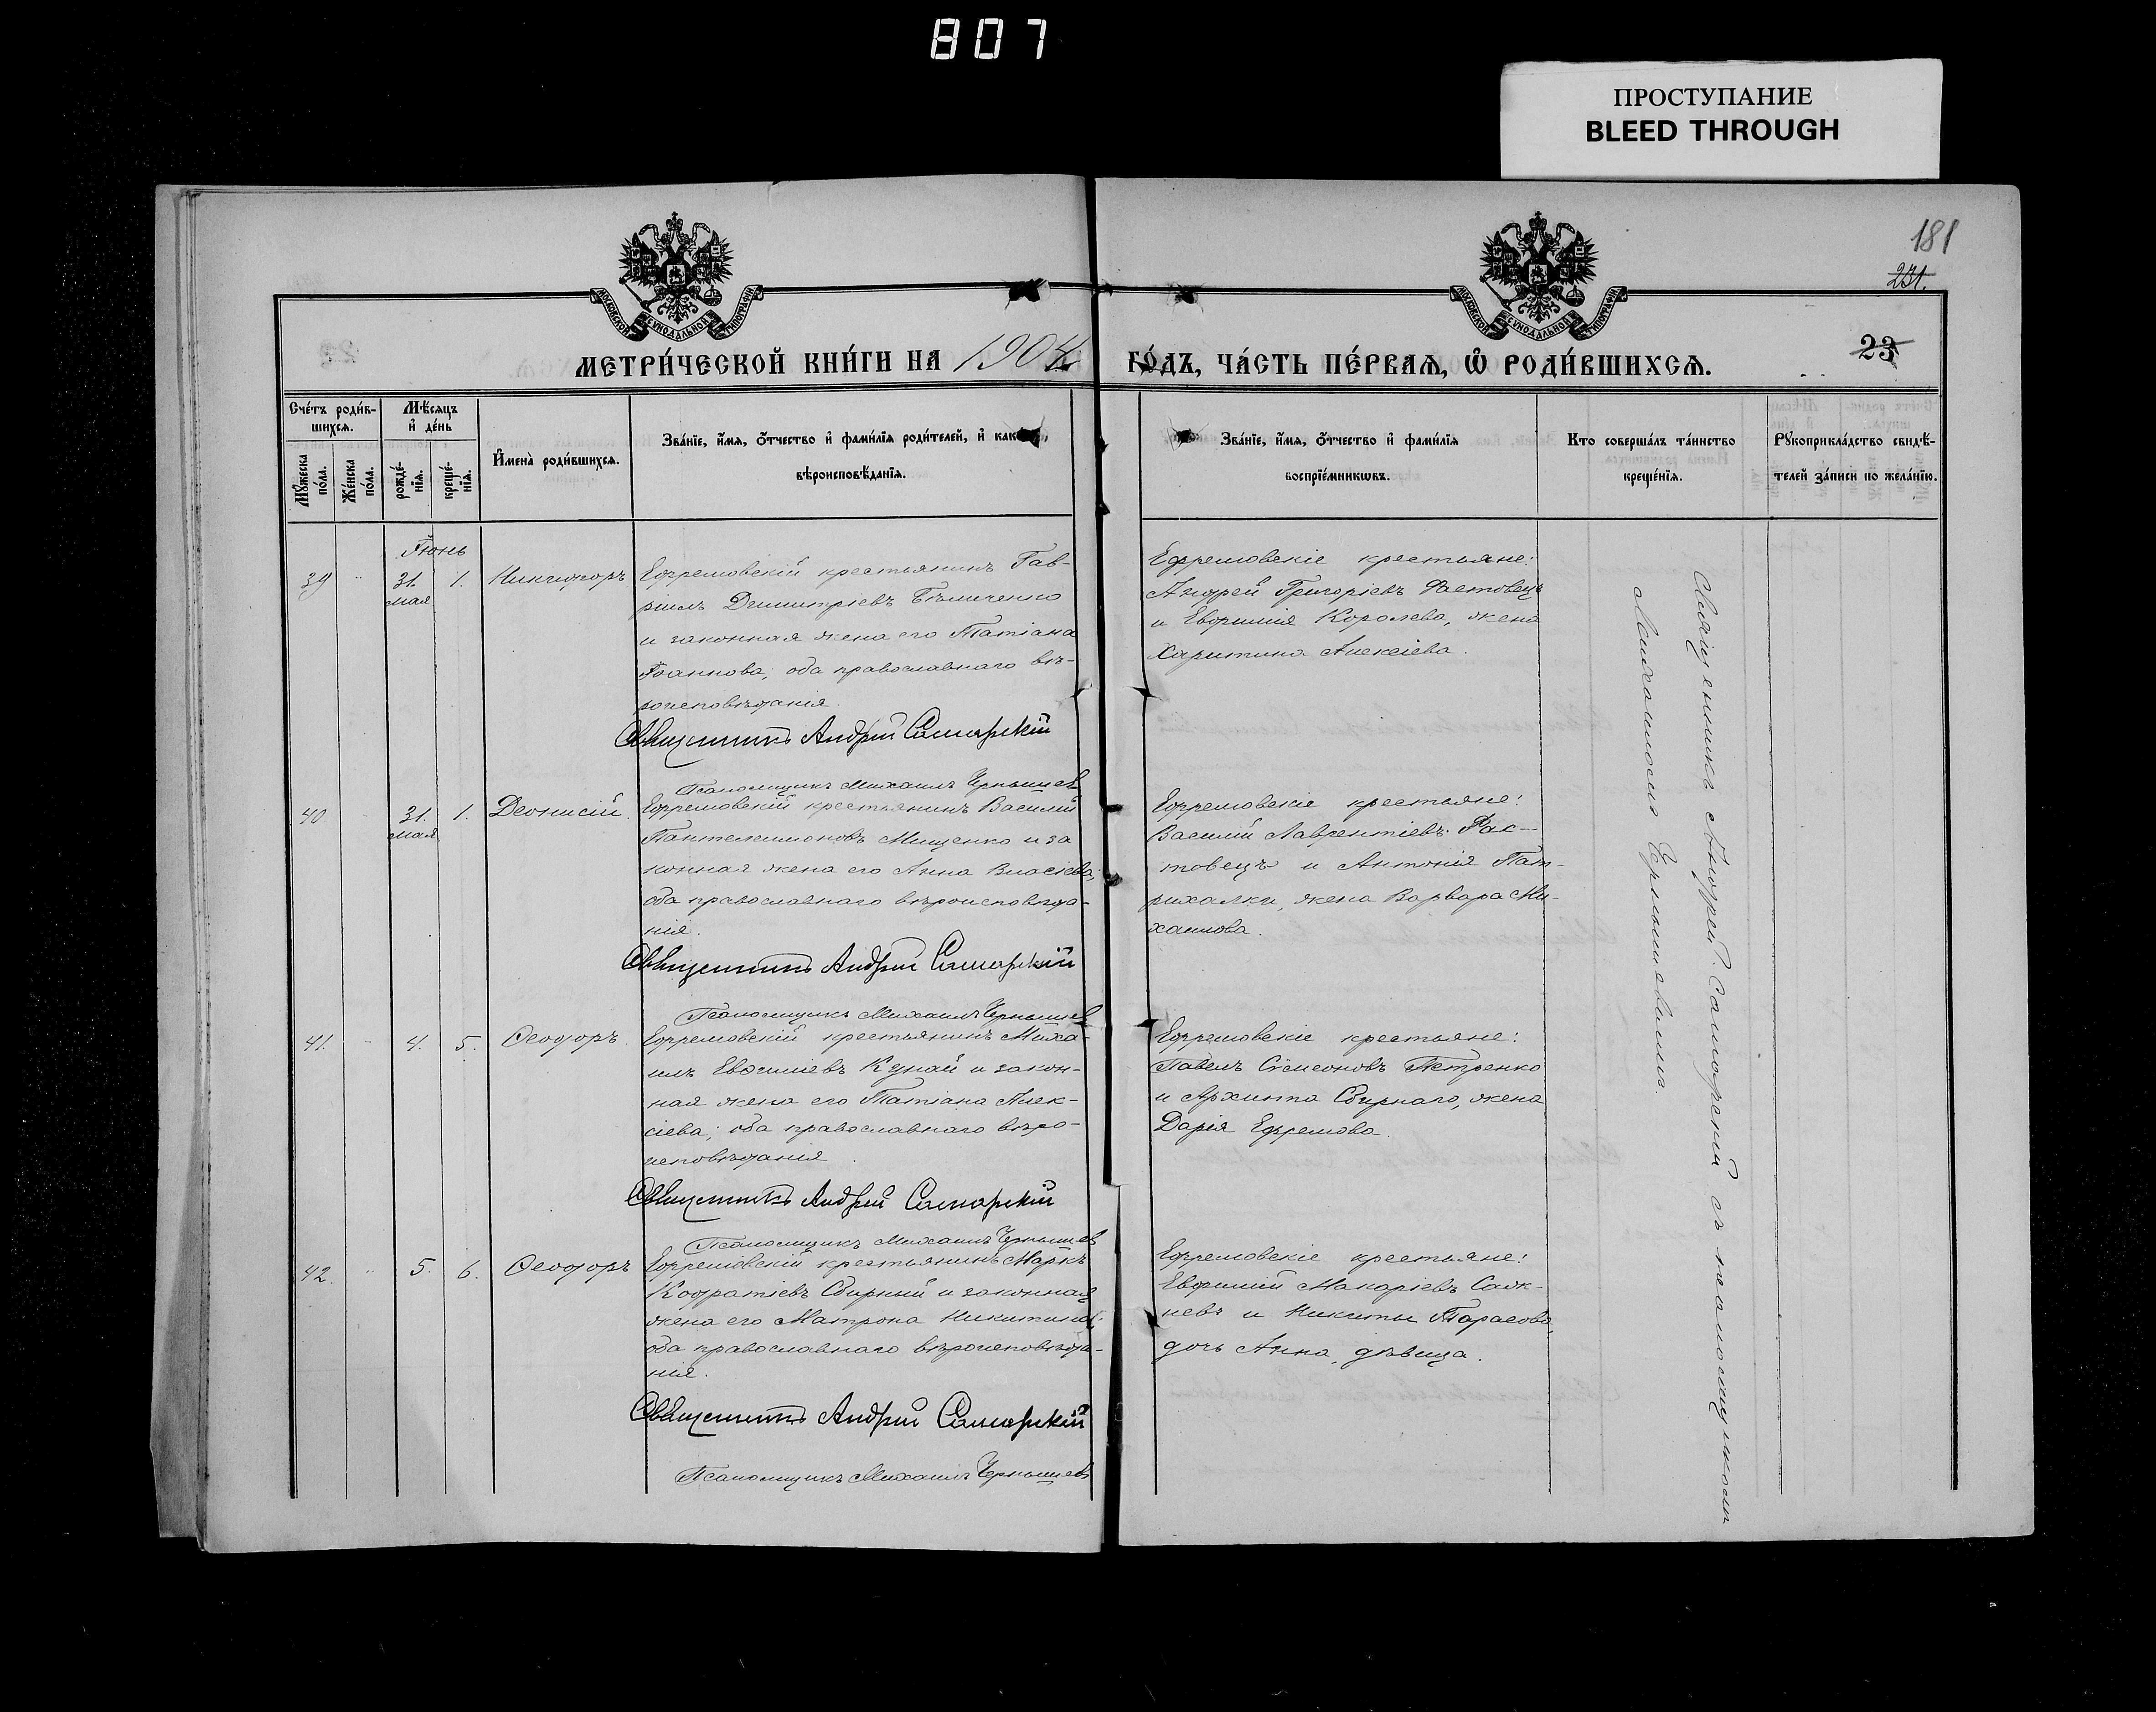 807
ПРОСТУПАНИЕ
BLEED THROUGH
181
231.
23
МОСКОВСКОЙ СѴНОДАЛЬНОЙ ТИПОГРАФІИ
МОСКОВСКОЙ СѴНОДАЛЬНОЙ ТИПОГРАФІИ
МЕТРИ́ЧЕСКОЙ КНИ́ГИ НА 1904
ГО́ДЪ, ЧА́СТЬ ПЕ́РВАЯ, Ѡ҆ РОДИ́ВШИХСЯ.
Сче́тъ роди́в-
шихся.
Мѣ́сяцъ
и҆ де́нь
Мꙋ́жеска
по́ла.
Же́нска
по́ла.
рожде́-
нїя.
креще́-
нїя.
И҆мена̀ роди́вшихся.
Зва́нїе, и҆́мя, ѻ҆́тчество и҆ фами́лїя роди́телей, и҆ как
вѣроисповѣ́данїя.
Зва́нїе, и҆́мя, ѻ҆́тчество и҆ фами́лїя
воспрїе́мникωвъ.
Кто соверша́лъ та́инство
креще́нїя.
Рꙋкоприкла́дство свидѣ́-
телей за́писи по жела́нїю.
Іюнь
39 31. мая 1. Никифоръ
Ефремовскій крестьянинъ Гав-
ріилъ Димитріевъ Бѣличенко
и законная жена его Татіана
Іоаннова; оба православнаго вѣ-
роисповѣданія.
Священникъ Андрей Самарскій
Псаломщикъ Михаилъ Чернышев
Ефремовскіе крестьяне:
Андрей Григоріевъ Фастовецъ
и Евфимія Королева, жена
Харитина Алексіева.
40. 31. мая 1. Деонисій.
Ефремовскій крестьянинъ Василій
Пантелимоновъ Мищенко и за
конная жена его Анна Власіева;
оба православнаго вѣроисповѣда-
нія.
Священникъ Андрей Самарскій
Псаломщикъ Михаилъ Чернышев
Ефремовскіе крестьяне:
Василій Лаврентіевъ Фас-
товецъ и Антонія Пат-
рихалки, жена Варвара Ми-
хаилова.
41. 4. 5. Ѳеодоръ
Ефремовскій крестьянинъ Миха-
илъ Евѳиміевъ Кунай и закон-
ная жена его Татіана Алек-
сіева; оба православнаго вѣро-
исповѣданія.
Священникъ Андрей Самарскій
Псаломщикъ Михаилъ Чернышев
Ефремовскіе крестьяне:
Павелъ Сѵмеоновъ Петренко
и Архиппа Сбирнаго, жена
Дарія Ефремова.
42. 5. 6. Ѳеодоръ
Ефремовскій крестьянинъ Маркъ
Кодратіевъ Сбирный и законная
жена его Матрона Никитина;
оба православнаго вѣроисповѣда-
нія.
Священникъ Андрей Самарскій
Псаломщикъ Михаилъ Чернышев
Ефремовскіе крестьяне:
Евфимій Макаріевъ
и Никиты Тарасова,
дочь Анна, дѣвица.
Священникъ Андрей Самарскій съ псаломщикомъ
Михаиломъ Чернышевымъ.